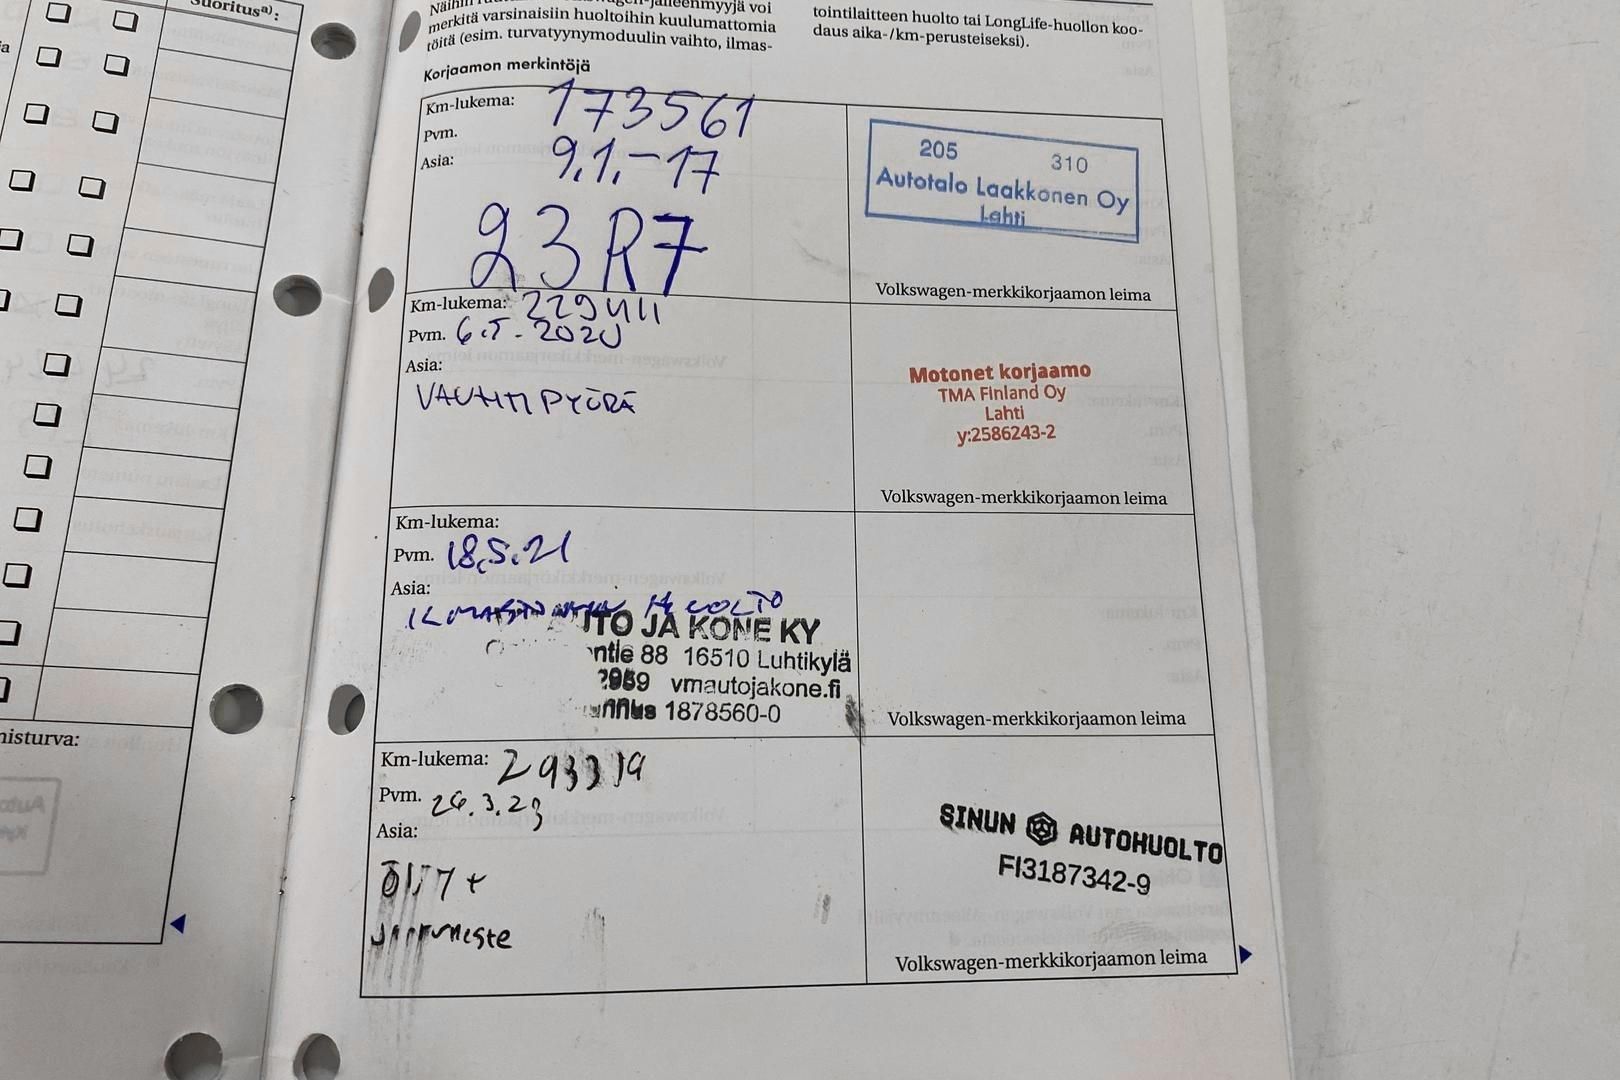 Suoritusa):
Näihin
-jälleenmyyjä voi
merkitä varsinaisiin huoltoihin kuulumattomia
töitä (esim. turvatyynymoduulin vaihto, ilmas-
tointilaitteen huolto tai LongLife-huollon koo-
daus aika-/km-perusteiseksi).
Korjaamon merkintöjä
Km-lukema: 173561
Pvm. 9.1.-17
Asia:
23R7
205 310
Autotalo Laakkonen Oy
Lahti
Volkswagen-merkkikorjaamon leima
Km-lukema: 229411
Pvm. 6.5.2020
Asia:
VAUHTIPYÖRÄ
Motonet korjaamo
TMA Finland Oy
Lahti
y:2586243-2
Volkswagen-merkkikorjaamon leima
Km-lukema:
Pvm. 18.5.21
Asia:
HUOLTO
UTO JA KONE KY
ntie 88 16510 Luhtikylä
2959 vmautojakone.fi
unnus 1878560-0
Volkswagen-merkkikorjaamon leima
Km-lukema: 293319
Pvm. 26.3.23
Asia:
ÖLJY +
jarruneste
SINUN AUTOHUOLTO
FI3187342-9
Volkswagen-merkkikorjaamon leima
nisturva: